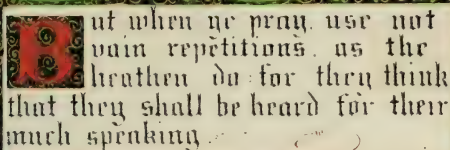 But when ye pray, use not
vain repetitions, as the
heathen do: for they think
that they shall be heard for their
much speaking